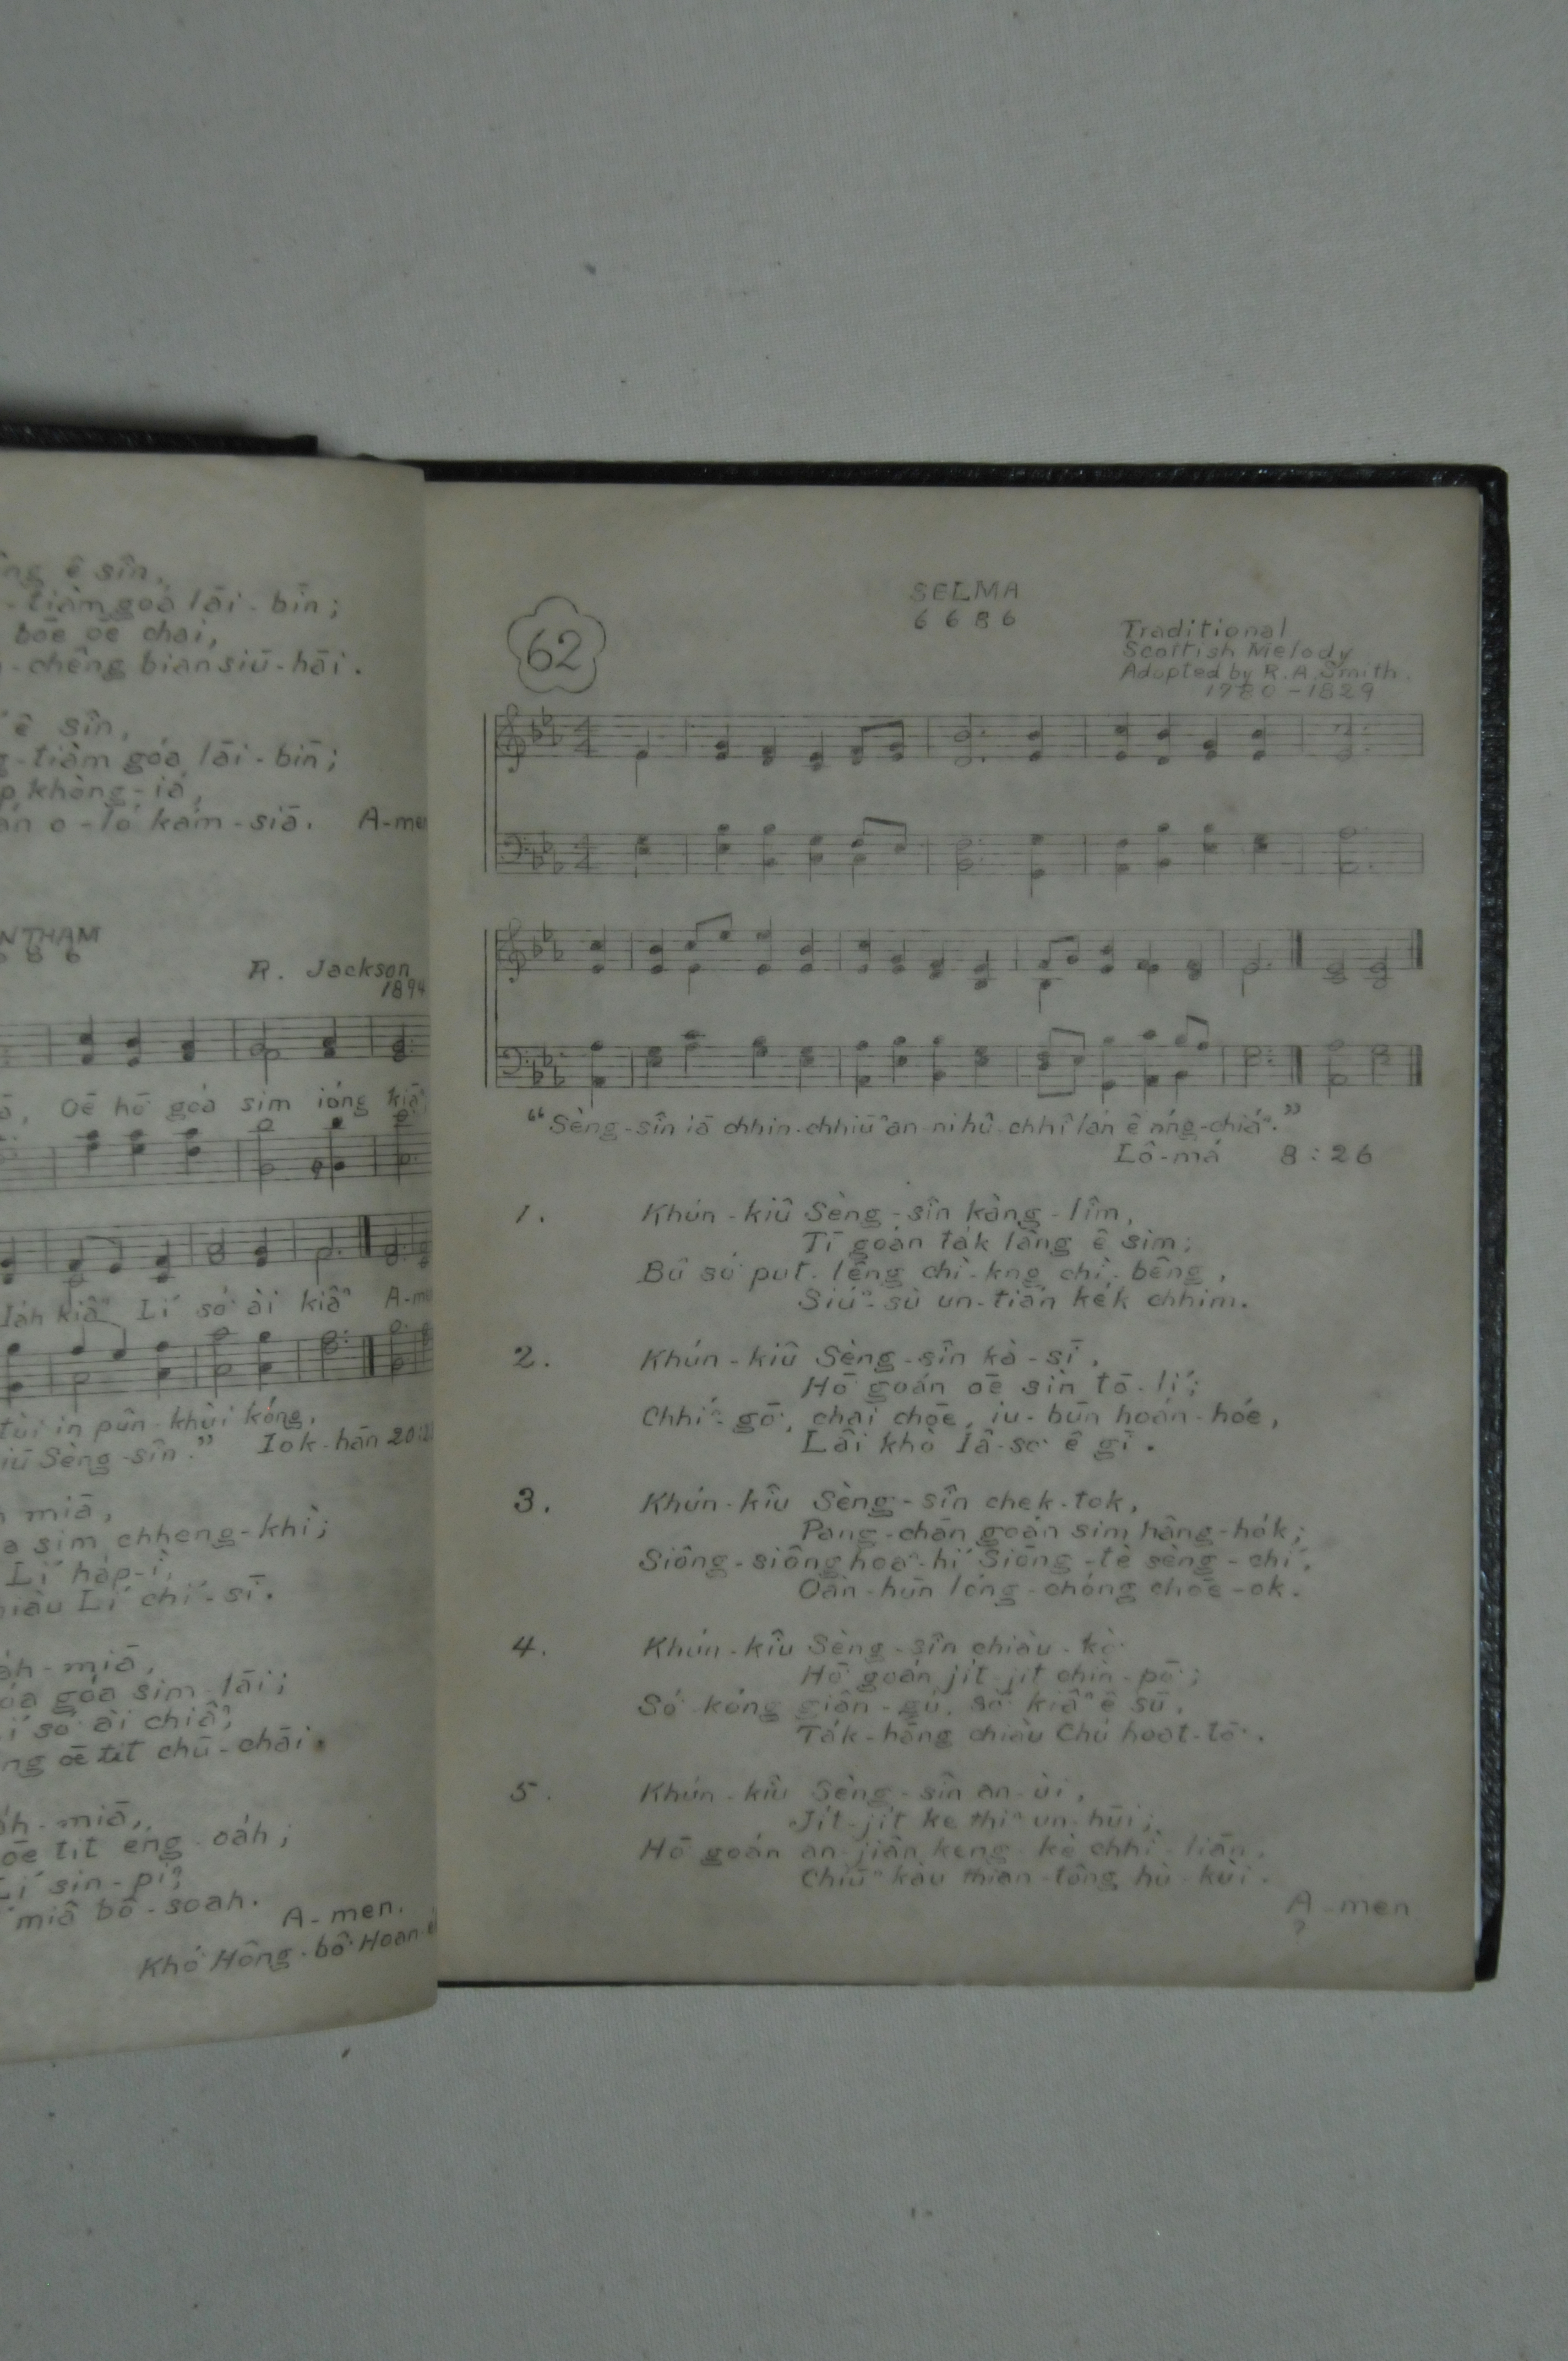 ê sîn,
tiàm góa lāi-bīn;
bōe oē chai,
chêng bian siū-hāi.
ê sîn,
tiàm góa lāi-bīn;
khòng-iá,
o-ló kám-siā. A-men
R. Jackson
1894
Oē hō͘ góa sim ióng kiāⁿ
Iáh kiâⁿ Lí só͘ ài kiâⁿ A-me
tùi in pûn-khùi kóng,
Sèng-sîn." Iok-hān 20:2
miā,
sim chheng-khì;
Lí háp-ì,
Lí chí-sī.
miā,
góa sim-lāi;
só͘ ài chiâⁿ,
oē tit chū-chāi.
miā,
oē tit éng-oáh;
Lí sin-piⁿ,
miâ bô-soah.
A-men.
Khó͘ Hông-bô͘ Hoan-e
62
SELMA
6 6 8 6
Traditional
Scottish Melody
Adopted by R. A. Smith
1780-1829
"Sèng-sîn iā chhin-chhiūⁿ an-ni hû-chhî lán ê nńg-chiáⁿ."
Lô-má 8:26
1. Khún-kiû Sèng-sîn kàng-lîm,
Tī goán ták lâng ê sim;
Bû só͘ put-lêng chì-kng chì-bêng,
Siúⁿ-sù un-tián kék chhim.
2. Khún-kiû Sèng-sîn kà-sī,
Hō͘ goán oē sìn tō-lí;
Chhíⁿ-gō͘, chai chōe, iu-būn hoán-hóe,
Lâi khò Iâ-so͘ ê gī.
3. Khún-kiû Sèng-sîn chek-tok,
Pang-chān goán sim hâng-hók;
Siông-siông hoaⁿ-hí Siōng-tè sèng-chí,
Oàn-hūn lóng-chóng chōe-ok.
4. Khún-kiû Sèng-sîn chiàu-kò͘
Hō͘ goán jít-jít chìn-pō͘;
Só͘ kóng giân-gú, só͘ kiâⁿ ê sū,
Ták-hāng chiàu Chú hoat-tō͘.
5. Khún-kiû Sèng-sîn an-ùi,
Jít-jít ke thiⁿ un-hūi;
Hō͘ goán an-jiân keng-kè chhì-liān,
Chiūⁿ kàu thian-tông hù-kùi.
A-men
?